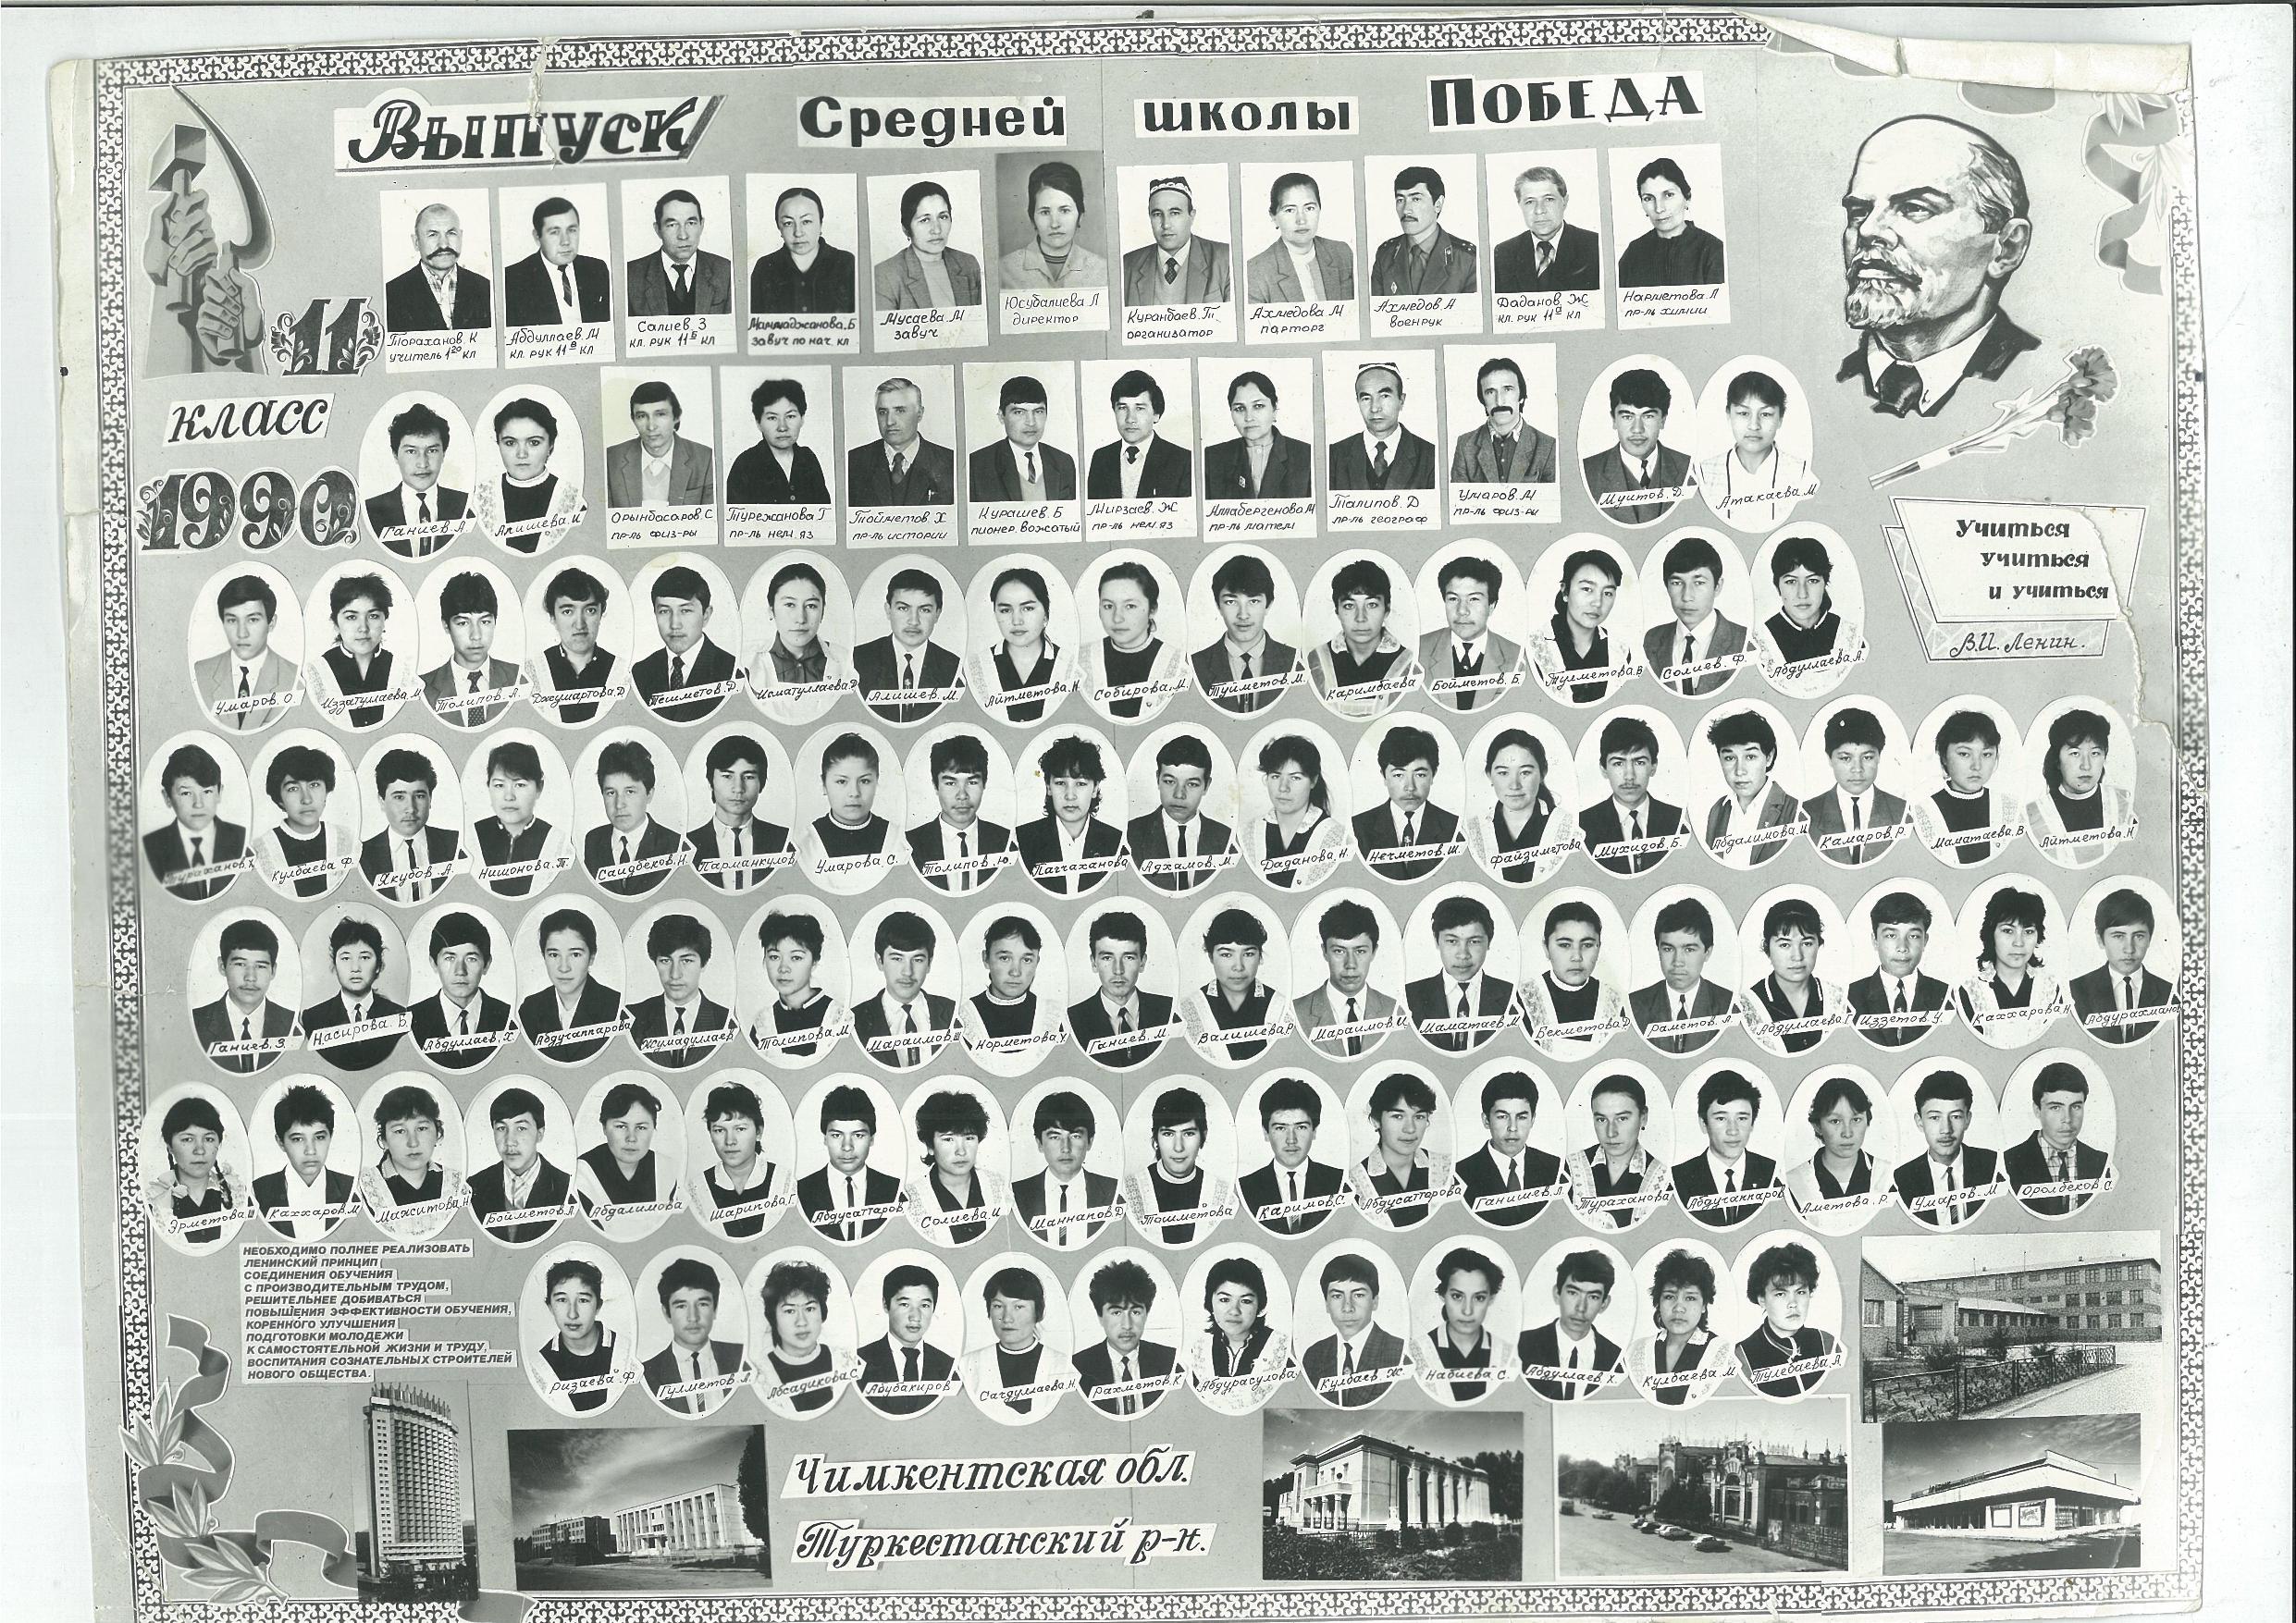 Выпуск Средней школы ПОБЕДА
11
класс
1990
Тораханов К
учитель 1го кл
Абдуллаев М
кл. рук 11в кл
Салиев З
кл. рук 11б кл
Маммаджанова Б
завуч по нач кл
Мусаева М
завуч
Юсубалиева Л
директор
Куранбаев Т
организатор
Ахмедова М
парторг
Ахмедов А
военрук
Даданов Ж
кл. рук 11а кл
Нарметова Л
пр-ль химии
Ганиев. А.
Алишева. И
Орынбасаров. С
пр-ль физ-ры
Турежанова Г
пр-ль нем. яз
Тойметов Х
пр-ль истории
Курашев. Б
пионер. вожатый
Мирзаев. Ж
пр-ль нем. яз
Аллабергенова М
пр-ль матем
Талипов. Д
пр-ль географ
Умаров. М
пр-ль физ-ры
Муитов. Д.
Атакаева. М.
Учиться
учиться
и учиться
В.И. Ленин.
Умаров. О.
Иззатуллаева. М
Толипов. А.
Джумартова. Д
Пешметов. Д.
Исматуллаева. Д
Алишев. М.
Айтметова. Н
Собирова. М.
Туйметов. М.
Каримбаева
Бойметов. Б.
Тулметова. В
Солиев. Ф.
Абдуллаева. А.
Тураханов. Х
Кулбаева Ф.
Якубов. А.
Нишонова. П.
Саидбеков. Н.
Парманкулов
Умарова. С.
Толипов. Ю.
Пагчаханова
Адхамов. М.
Даданова. Н.
Нечметов. Ш.
Файзиметова
Мухидов. Б.
Абдалимова. И
Камаров. Р.
Маматаева. В
Айтметова. Н
Ганиев. З.
Насирова. Б.
Абдуллаев. Х.
Абдучаппарова
Жумадуллаев
Толипова. М.
Мараимов. Ш
Норметова. У.
Ганиев. М.
Валишева. Р
Мараимов. И.
Маматаев. М
Бекметова. Д
Раметов. А.
Абдуллаева. Г
Иззетов. У.
Каххарова. Н
Абдурахманов
Эрметова. Ш
Каххаров. М
Мажитова. Н
Бойметов. А
Абдалимова
Шарипова. Г.
Абдусаттаров
Солиева. И
Маннапов. Д
Пошметова
Каримов. С.
Абдусаттарова
Ганишев. Л.
Тураханова
Абдучаппаров
Аметова. Р.
Умаров. М
Оролбеков. С.
НЕОБХОДИМО ПОЛНЕЕ РЕАЛИЗОВАТЬ
ЛЕНИНСКИЙ ПРИНЦИП
СОЕДИНЕНИЯ ОБУЧЕНИЯ
С ПРОИЗВОДИТЕЛЬНЫМ ТРУДОМ,
РЕШИТЕЛЬНЕЕ ДОБИВАТЬСЯ
ПОВЫШЕНИЯ ЭФФЕКТИВНОСТИ ОБУЧЕНИЯ,
КОРЕННОГО УЛУЧШЕНИЯ
ПОДГОТОВКИ МОЛОДЕЖИ
К САМОСТОЯТЕЛЬНОЙ ЖИЗНИ И ТРУДУ,
ВОСПИТАНИЯ СОЗНАТЕЛЬНЫХ СТРОИТЕЛЕЙ
НОВОГО ОБЩЕСТВА.
Ризаева. Ф.
Гулметов. А.
Абсадикова С.
Абубакиров
Сагдуллаева. Н.
Рахметов. К
Абдурасулова
Кулбаев. Ж.
Набиева. С.
Абдуллаев Х.
Кулбаева. М
Тулебаева. А.
Чимкентская обл.
Туркестанский р-н.